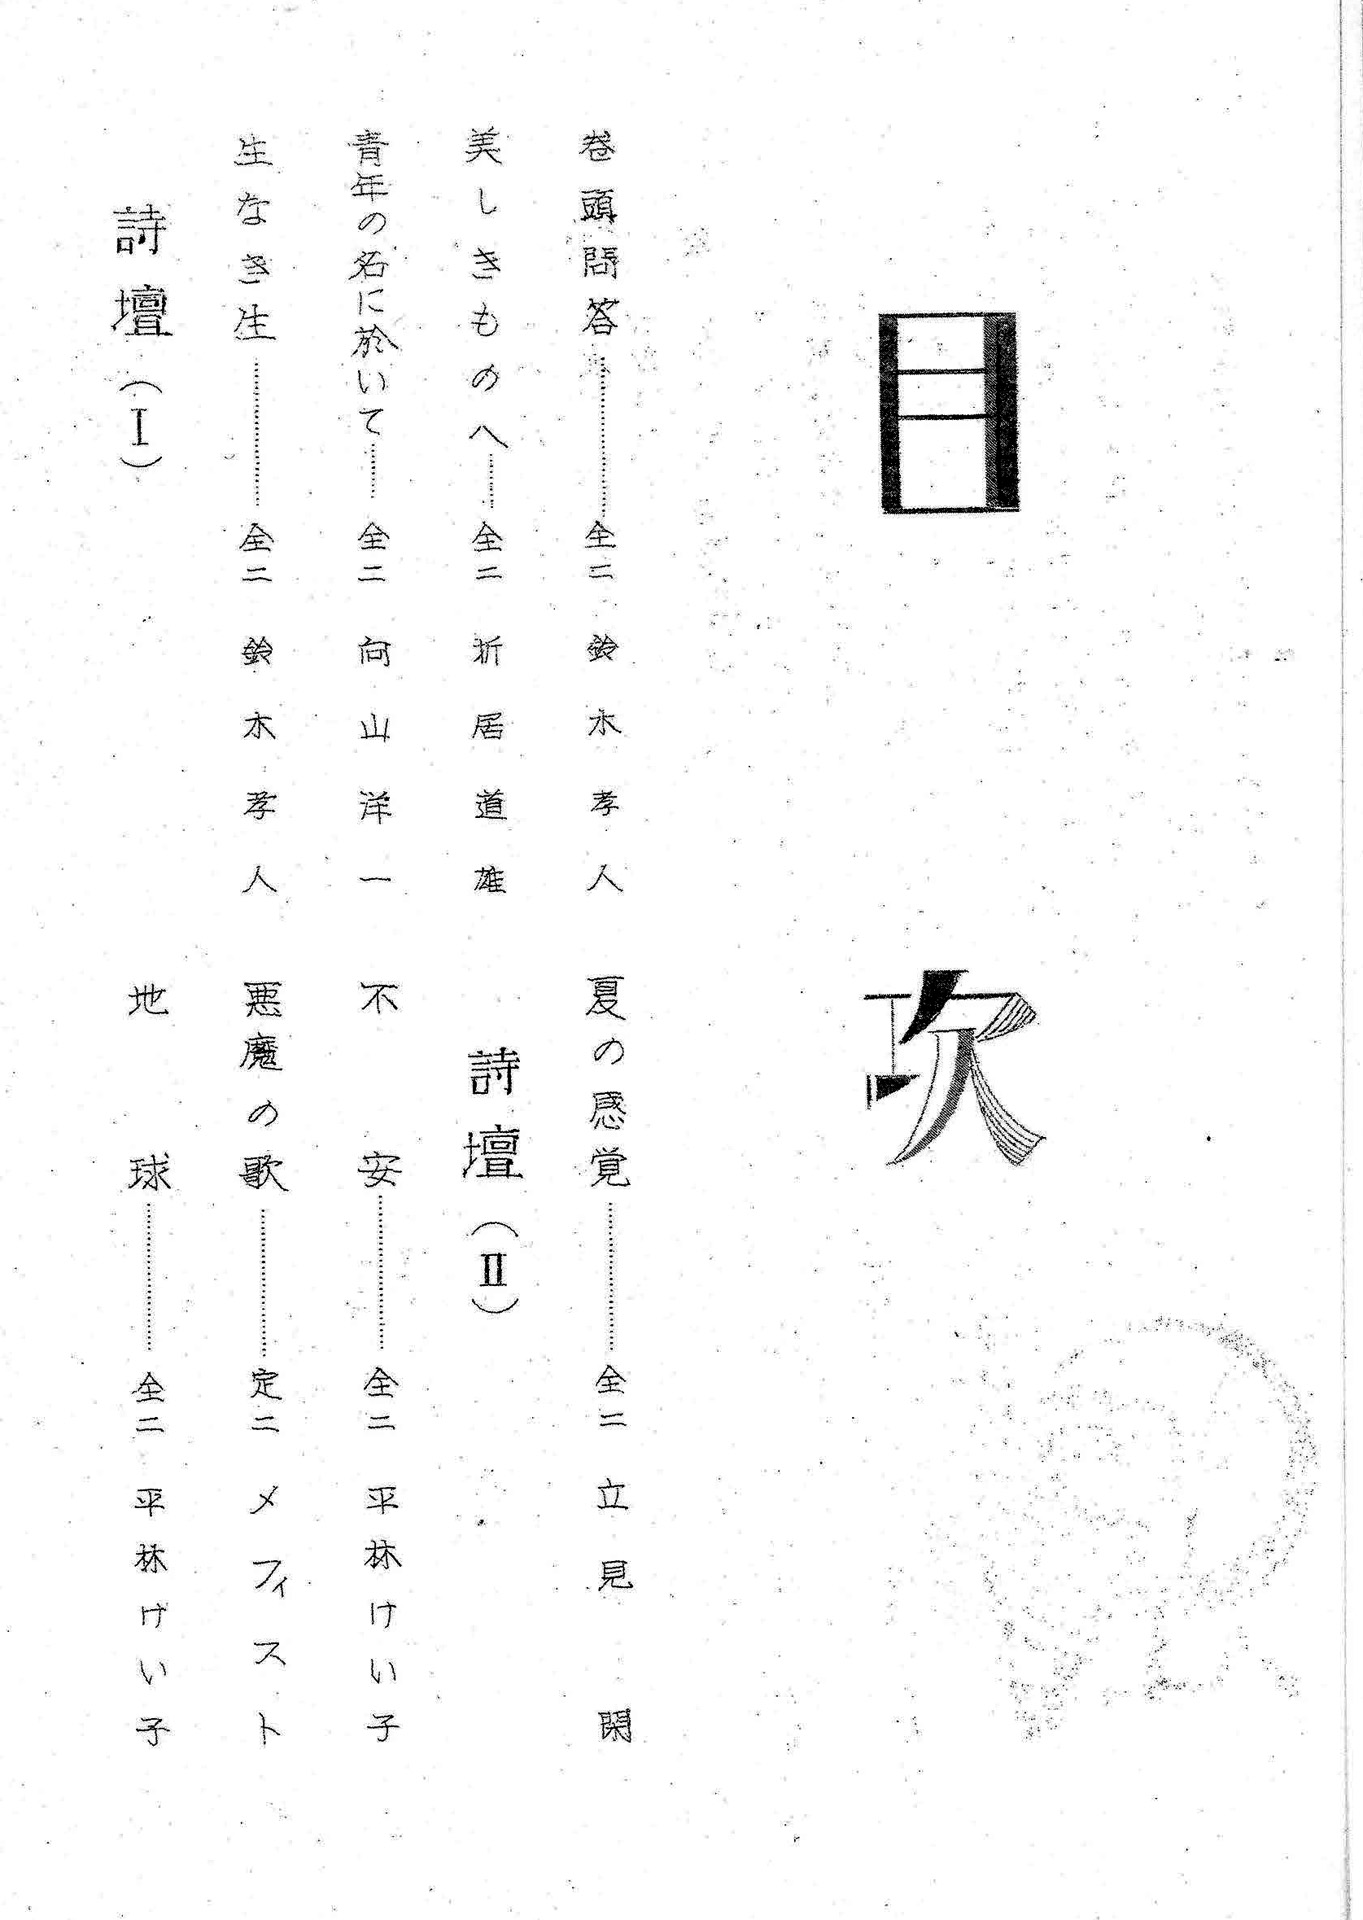 目次
巻頭問答………全二 鈴木孝人
美しきものへ………全二 折居道雄
青年の名に於いて………全二 向山洋一
生なき生………全二 鈴木孝人
詩壇（Ⅰ）
夏の感覚………全二 立見 閑
詩壇（Ⅱ）
不安………全二 平林けい子
悪魔の歌………定二 メフィスト
地球………全二 平林けい子